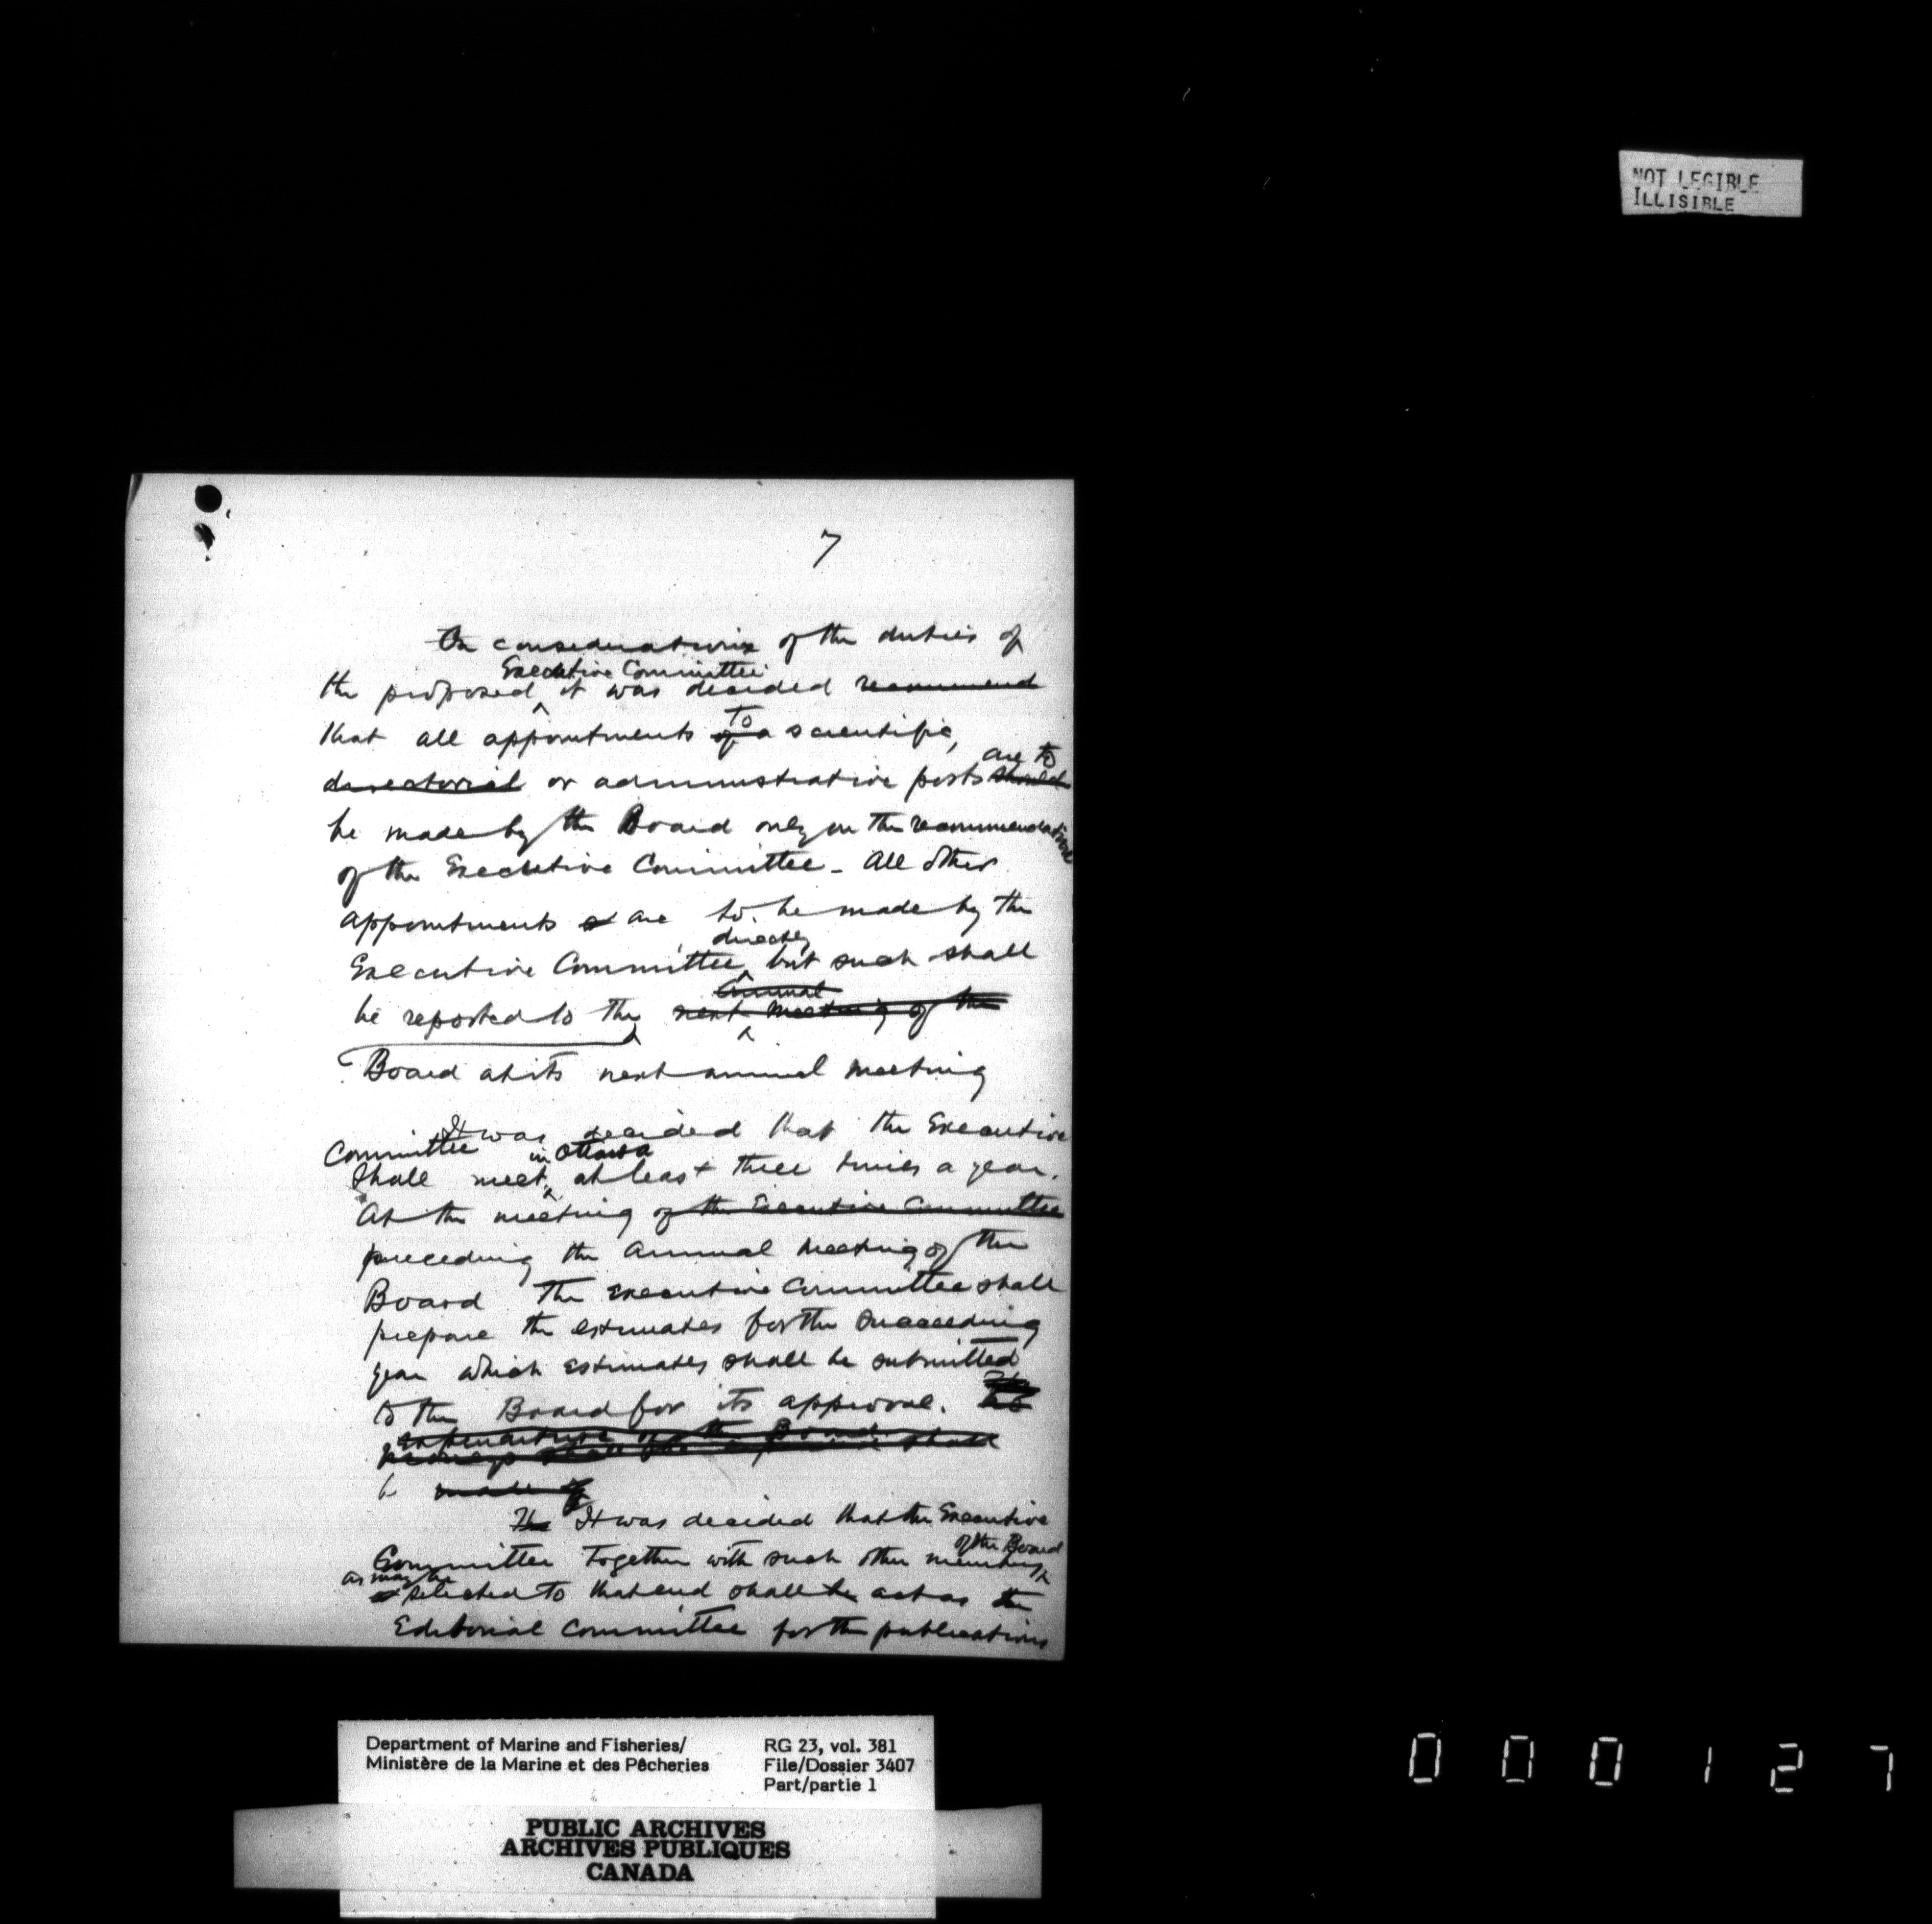 NOT LEGIBLE
ILLISIBLE
7
On consideration of the duties of
Executive Committee
the proposed it was decided recommend
that all appointments of a to scientific,
are to
directorial or administrative posts should
be made by the Board only on the recommendation
of the Executive Committee - All other
appointments are to be made by the
directly
Executive Committee but such shall
annual
be reported to the next meeting of the
Board at its next annual meeting
It was decided that the Executive
Committee in Ottawa
shall meet at least three times a year.
At the meeting of the Executive Committee
preceding the Annual Meeting of the
Board The Executive Committee shall
prepare the estimates for the succeeding
year which estimates shall be submitted
to the Board for its approval.
expenditure of the Board
shall
be made
The It was decided that the Executive
of the Board
Committee together with such other members
as may be
selected to that end shall be act as the
Editorial Committee for the publications
Department of Marine and Fisheries/ RG 23, vol. 381
Ministère de la Marine et des Pêcheries File/Dossier 3407
Part/partie 1
PUBLIC ARCHIVES
ARCHIVES PUBLIQUES
CANADA
0 0 0 1 2 7